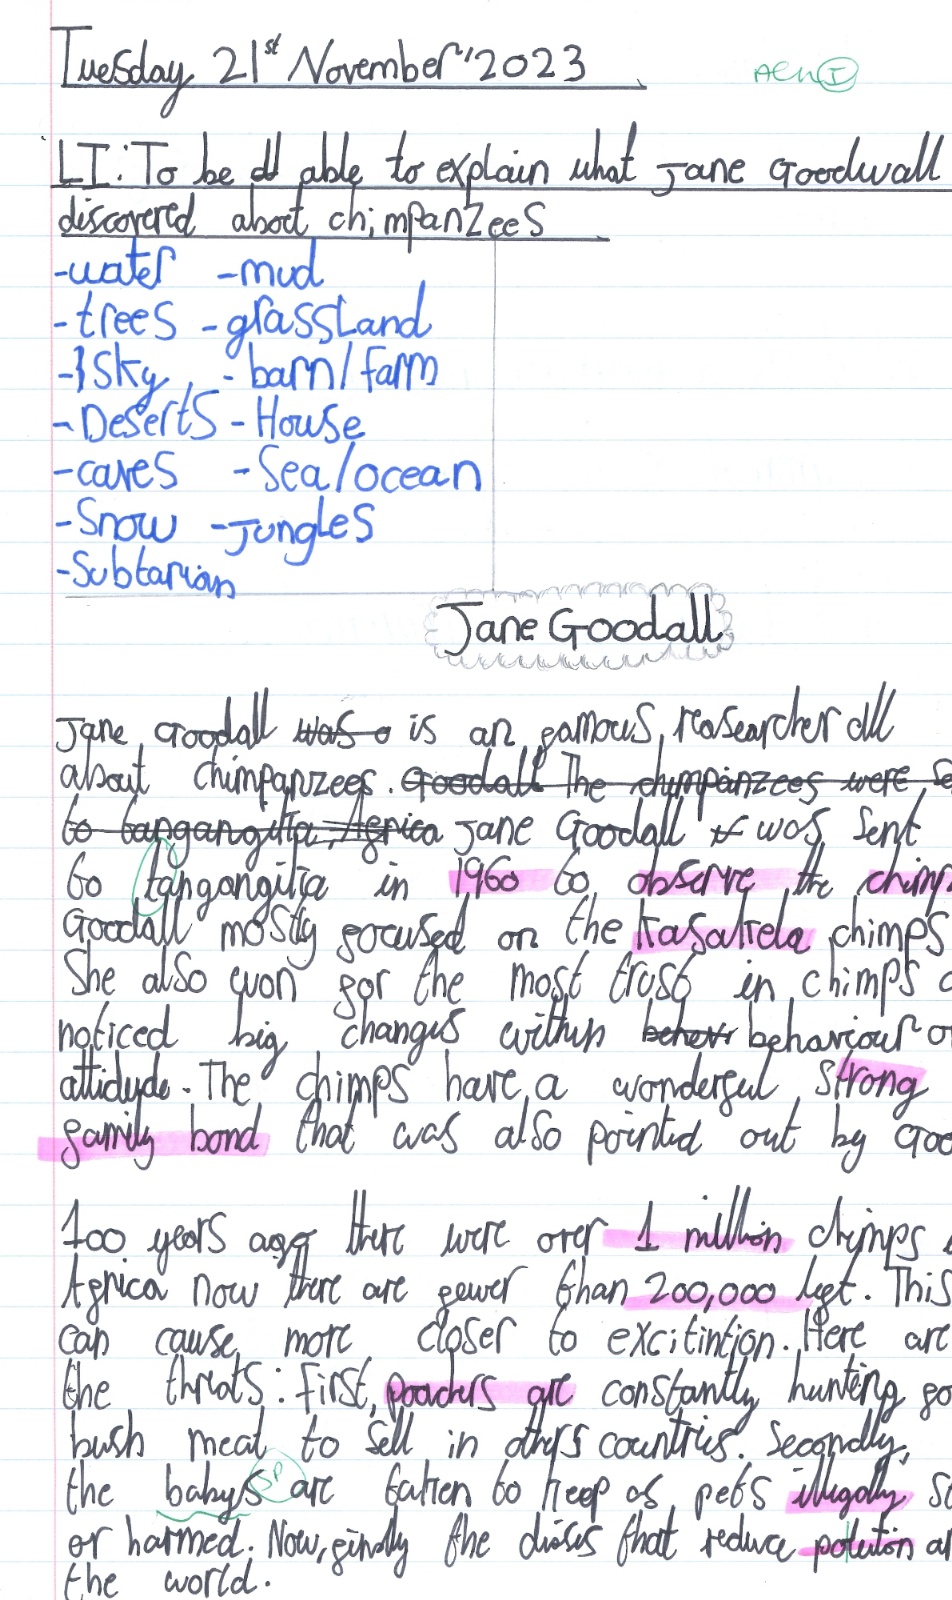 Tuesday 21st November '2023
LI: To be able to explain what Jane Goodwall
discovered about chimpanzees
-water -mud
-trees -grassland
-Sky -barn/farm
-Deserts -House
-caves -Sea/ocean
-Snow -Jungles
-Subtarian
Jane Goodall
Jane Goodall was a is an famous, reasearcher all
about chimpanzees. Goodall The chimpanzees were se
to tangangitia, Africa Jane Goodall was sent
to tangangitia in 1960 to observe the chimp
Goodall mostly focused on the Kasakela chimps
She also won for the most trust in chimps
noticed big changes within behavour
attidude. The chimps have a wonderful strong
family bond that was also pointed out by Goo
100 years ago there were over 1 million chimps
Africa now there are fewer than 200,000 left. This
can cause more closer to excitintion. Here are
the threats: First, poachers are constantly hunting for
bush meat to sell in others countries. Secondly,
the babys sp are taken to keep as pets illegally, s
or harmed. Now, finally the that reduce polution
the world.